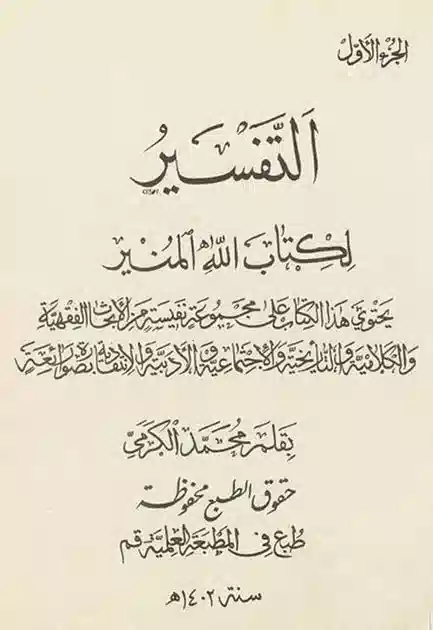 الجزء الأول
اَلتَّفْسِيرُ
لِكِتابِ اللهِ المُنير
يَحتَوي هذا الكِتابُ عَلى مَجموعَةٍ نَفيسَةٍ مِنَ الأبحاثِ الفِقهِيَّةِ
وَالكَلامِيَّةِ وَالتّاريخيَّةِ وَالاِجتِماعيَّةِ وَالأدَبيَّةِ وَالاِنتِقاديَّةِ بِصُورَةٍ رائِعَةٍ
بِقَلَمِ مُحَمَّد الكَرَمي
حقوق الطبع محفوظة
طُبعَ في المَطبَعَةِ العِلميَّةِ قم
سنة ١٤٠٢ه